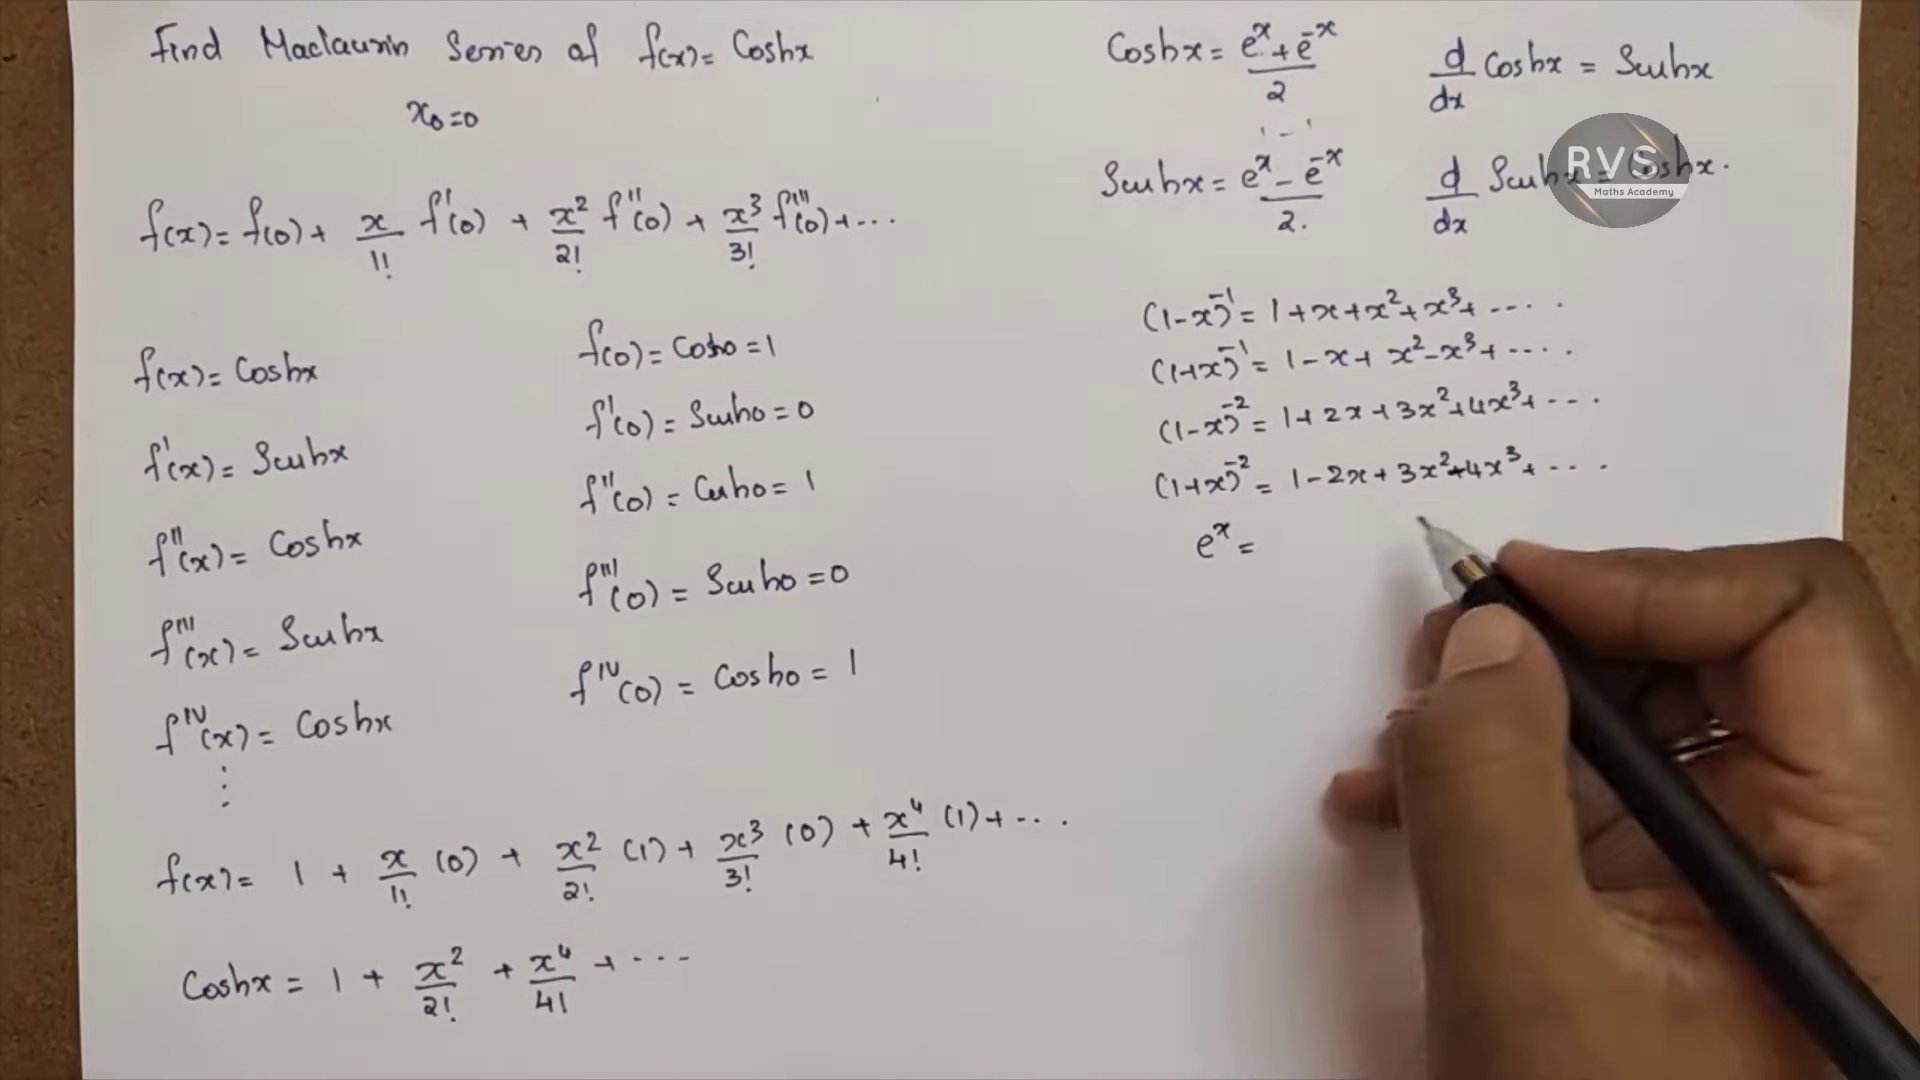 Find Maclaurin Series of f(x) = Coshx
x₀=0
f(x) = f(0) + x/1! f'(0) + x²/2! f''(0) + x³/3! f'''(0) + ...
f(x) = Coshx
f(0) = Cosh0 = 1
f'(x) = Sinhx
f'(0) = Sinh0 = 0
f''(x) = Coshx
f''(0) = Cosh0 = 1
f'''(x) = Sinhx
f'''(0) = Sinh0 = 0
f^IV(x) = Coshx
f^IV(0) = Cosh0 = 1
⋮
f(x) = 1 + x/1! (0) + x²/2! (1) + x³/3! (0) + x⁴/4! (1) + ...
Coshx = 1 + x²/2! + x⁴/4! + ...
Coshx = (e^x + e^-x)/2
d/dx Coshx = Sinhx
Sinhx = (e^x - e^-x)/2.
d/dx Sinhx = Coshx.
RVS
Maths Academy
(1-x)^-1 = 1+x+x²+x³+ ....
(1+x)^-1 = 1-x+x²-x³+ ....
(1-x)^-2 = 1+2x+3x²+4x³+ ...
(1+x)^-2 = 1-2x+3x²-4x³+ ...
e^x =